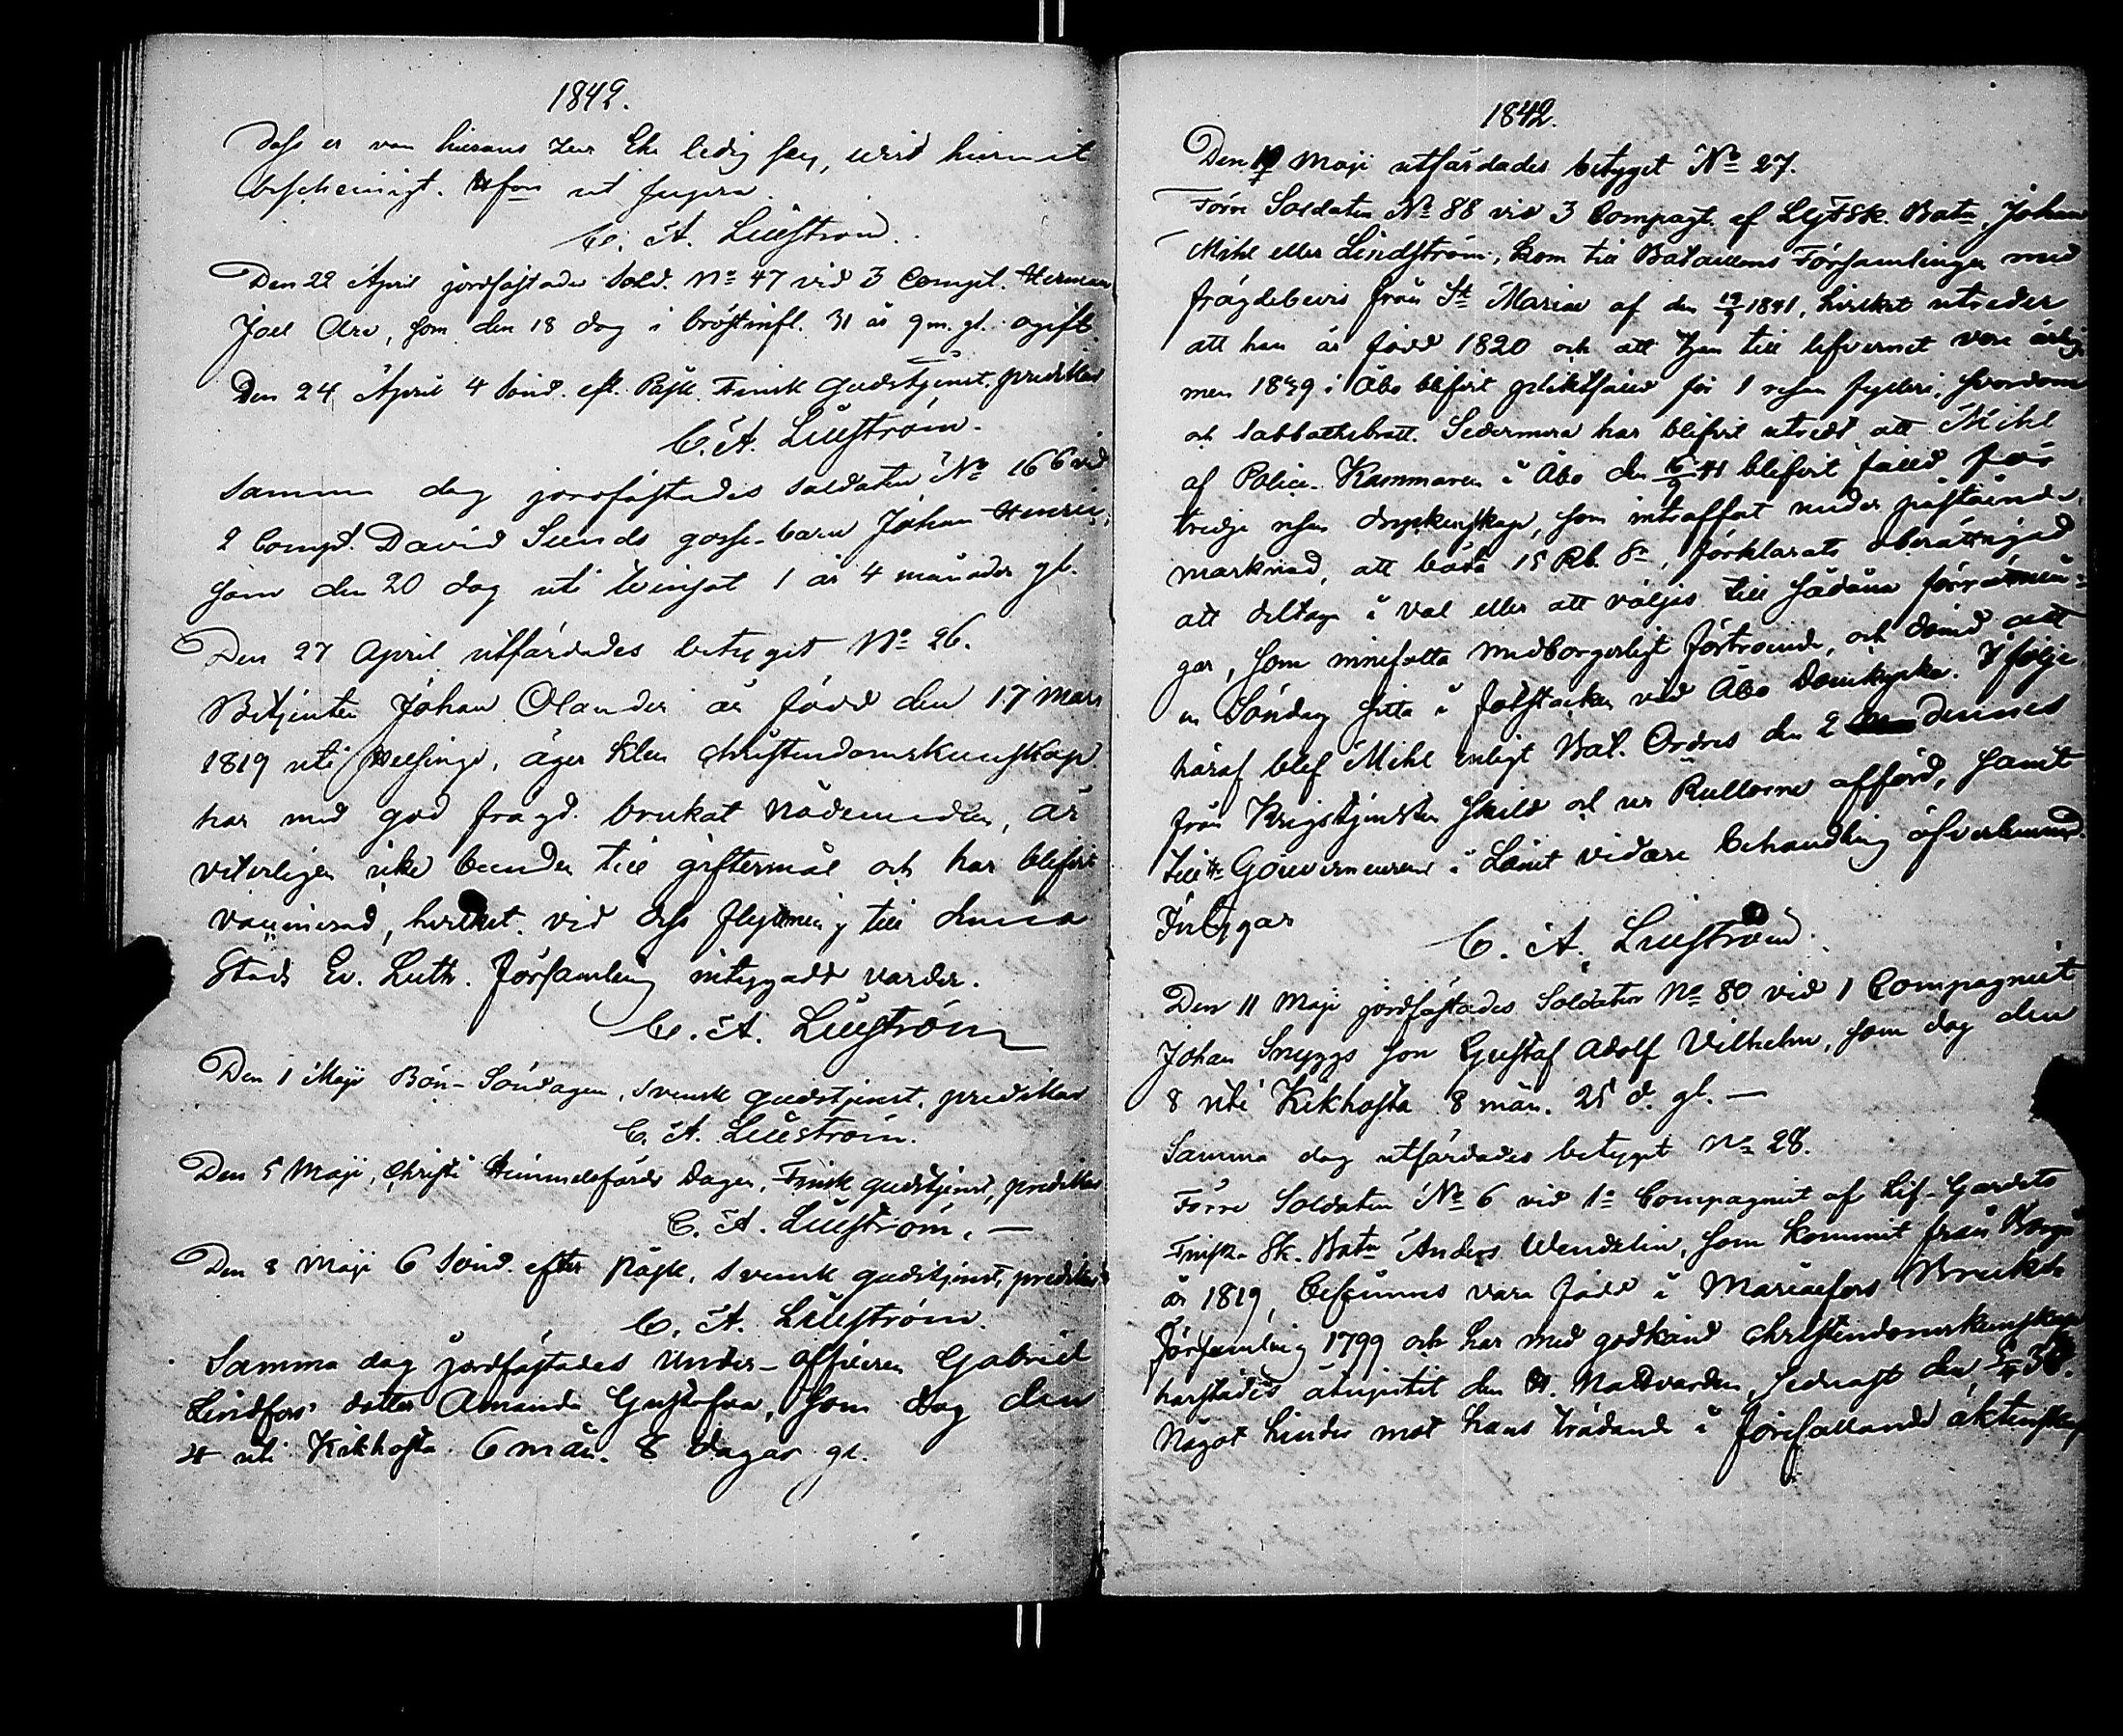 1842.
Dass er von hieraus zur Ehe ledig sey, wird hiermit
bescheinigt. Hfors ut supra.
C. A. Liliström.
Den 22 April jordfästades Sold. No 47 vid 3 Compt. Herman
Joel Are, som den 18 dog i bröstinfl. 31 år 9 m. gl. ogift.
Den 24 April 4 Sönd. eft. Påsk. Finsk gudstjenst, predikad
C. A. Liliström.
Samma dag jordfästades soldaten No 166 vid
2 Compt. David Sunds gosse-barn Johan Henric,
som den 20 dog uti 1 år 4 månader gl.
Den 27 April utfärdades betyget No 26.
Betjenten Johan Olander är född den 17 Mars
1819 uti Helsinge, äger klen christendomskunskap
har med god frägd brukat nådemedlen, är
veterligen icke bunden till giftermål och har blifvit
vaccinerad, hvilket vid dess flyttning till denna
Stads Ev. Luth. Församling intygadt varder.
C. A. Liliström
Den 1 Maji Bön-Söndagen, svensk gudstjenst, predikad
C. A. Liliström.
Den 5 Maji, Christi Himmelsfärds Dagen, Finsk gudstjenst, predikad
C. A. Liliström. —
Den 8 Maji 6 Sönd. efter Påsk, svensk gudstjenst, predikad
C. A. Liliström.
Samma dag jordfästades Under-officeren Gabriel
Lindfors' dotter Amanda Gustafva, som dog den
4 uti Kikhosta 6 mån. 8 dagar gl.
1842.
Den 10 Maji utfärdades betyget No 27.
Förre Soldaten No 88 vid 3 Compagt. af LGFSk. Batn Johan
Mihl eller Lindström, kom till Bataillons Församlingen med
frägdebevis från St Mariae af den 1841, hvilket utreder
att han är född 1820 och att han till lefvernet vore ärlig
men 1839 i Åbo blifvit pliktfälld för 1 resan fylleri, svordom
och sabbathsbrott. Sedermera har blifvit utredt att Mihl
af Police-Kammaren i Åbo den 41 blifvit fälld för
tredje resan dryckenskap, som inträffat under påstående
marknad, att böta 15 Rb. Sr, förklarats oberättigad
att deltaga i val eller att väljas till sådana förrättnin-
gar, som innefatta medborgerligt förtroende, och dömd att
en Söndag sitta i fotstocken vid Åbo Domkyrka. I följe
häraf blef Mihl enligt Bat. Ordres den 2 dennes
från Krigstjensten skild och ur Rullorne afförd, samt
till Gouverneuren i Länet vidare behandling öfverlemnad
Intygar
C. A. Liliström.
Den 11 Maji jordfästades Soldaten No 80 vid 1 Compagniet
Johan Snyggs son Gustaf Adolf Vilhelm, som dog den
8 uti Kikhosta 8 mån. 25 d. gl. —
Samma dag utfärdades betyget No 28.
Förre Soldaten No 6 vid 1a Compagniet af Lif-Gardets
Finska Sk. Batn Anders Wendelin, som kommit från Borgå
år 1819, befunnes vara född i Mariaefors Bruks
församling 1799 och har med godkänd christendomskunskap
härstädes åtnjutit den H. Nattvarden, sednast den 38.
Något hinder mot hans trädande i förefallande äktenskap